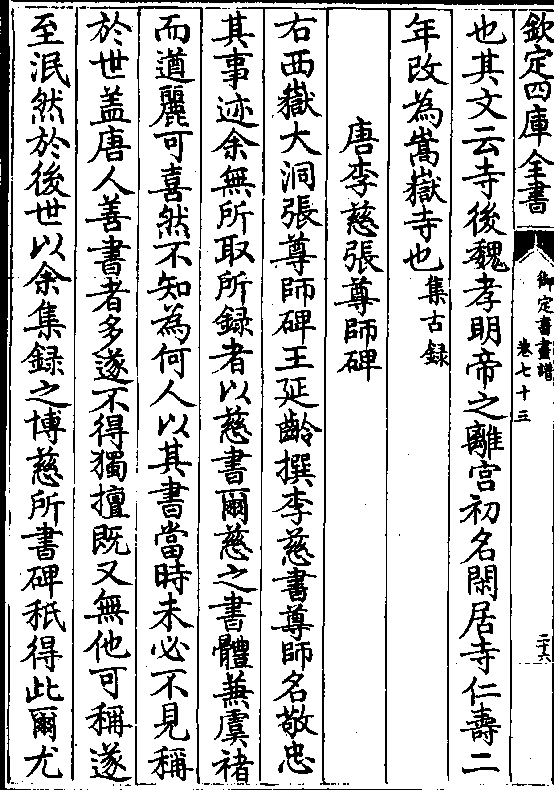 欽定四庫全書
御定書畫譜
卷七十三
二十六
也其文云寺後魏孝明帝之離宮初名閑居寺仁壽二
年改為嵩嶽寺也集古録
唐李慈張尊師碑
右西嶽大洞張尊師碑王延齡撰李慈書尊師名敬忠
其事迹余無所取所録者以慈書爾慈之書體兼虞褚
而遒麗可喜然不知為何人以其書當時未必不見稱
於世盖唐人善書者多遂不得獨擅既又無他可稱遂
至泯然於後世以余集録之博慈所書碑秖得此爾尤